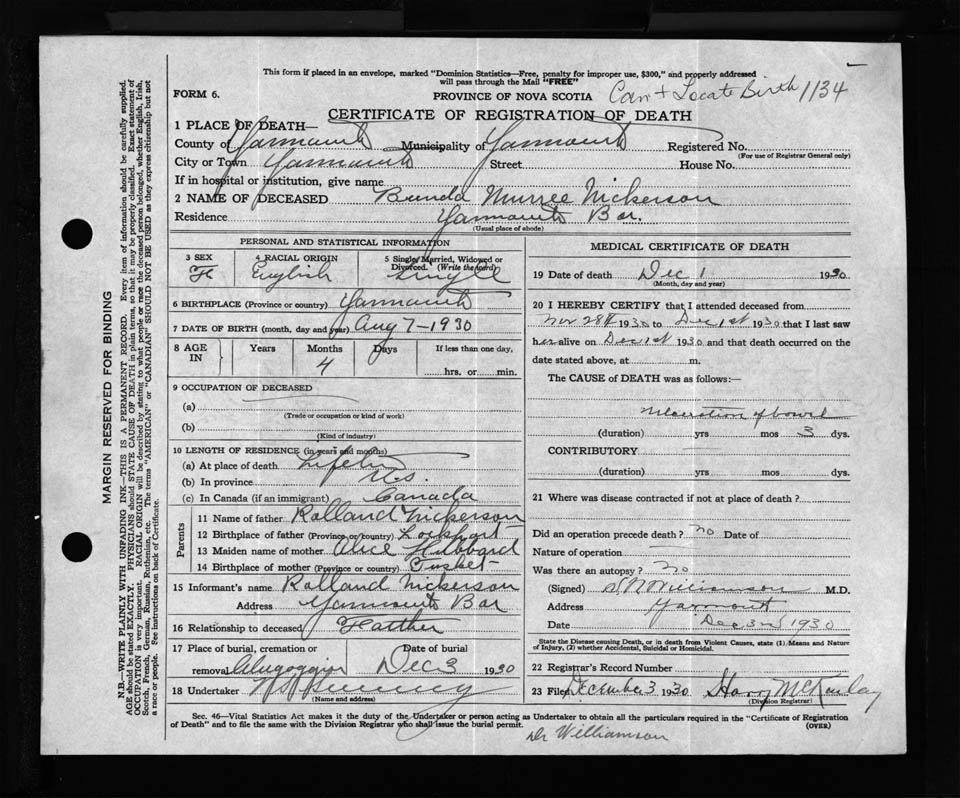 This form if placed in an envelope, marked "Dominion Statistics—Free, penalty for improper use, $300," and properly addressed
will pass through the Mail "FREE"
FORM 6.
PROVINCE OF NOVA SCOTIA
Can't Locate Birth 1134
CERTIFICATE OF REGISTRATION OF DEATH
1 PLACE OF DEATH—
County of Yarmouth Municipality of Yarmouth Registered No.
(For use of Registrar General only)
City or Town Yarmouth Street House No.
If in hospital or institution, give name
2 NAME OF DECEASED Murree Nickerson
Residence Yarmouth Bar.
(Usual place of abode)
PERSONAL AND STATISTICAL INFORMATION
3 SEX 4 RACIAL ORIGIN 5 Single, Married, Widowed or
Divorced. (Write the word)
F English Single
6 BIRTHPLACE (Province or country) Yarmouth
7 DATE OF BIRTH (month, day and year) Aug 7-1930
8 AGE IN Years Months Days If less than one day,
4
hrs. or min.
9 OCCUPATION OF DECEASED
(a)
(Trade or occupation or kind of work)
(b)
(Kind of industry)
10 LENGTH OF RESIDENCE (in years and months)
(a) At place of death Lifetime
(b) In province N.S.
(c) In Canada (if an immigrant) Canada
Parents
11 Name of father Rolland Nickerson
12 Birthplace of father (Province or country) Lockport
13 Maiden name of mother Alice Hibbard
14 Birthplace of mother (Province or country) Tusket
15 Informant's name Rolland Nickerson
Address Yarmouth Bar
16 Relationship to deceased Fatther
17 Place of burial, cremation or Date of burial
removal Dec 3 1930
18 Undertaker
(Name and address)
MEDICAL CERTIFICATE OF DEATH
19 Date of death Dec 1 1930
(Month, day and year)
20 I HEREBY CERTIFY that I attended deceased from
Nov 28th 1930 to Dec 1st 1930 that I last saw
her alive on Dec 1st 1930 and that death occurred on the
date stated above, at m.
The CAUSE of DEATH was as follows:—
Ulceration of bowel
(duration) yrs mos 3 dys.
CONTRIBUTORY
(duration) yrs. mos. dys.
21 Where was disease contracted if not at place of death?
Did an operation precede death? no Date of
Nature of operation
Was there an autopsy? no
(Signed) Williamson M.D.
Address Yarmouth
Date Dec 3rd 1930
State the Disease causing Death, or in death from Violent Causes, state (1) Means and Nature
of Injury, (2) whether Accidental, Suicidal or Homicidal.
22 Registrar's Record Number
23 Filed December 3 1930 Harry McKinlay
(Division Registrar)
Sec. 46—Vital Statistics Act makes it the duty of the Undertaker or person acting as Undertaker to obtain all the particulars required in the "Certificate of Registration
of Death" and to file the same with the Division Registrar who shall issue the burial permit.
(OVER)
Dr Williamson
MARGIN RESERVED FOR BINDING
N.B.—WRITE PLAINLY WITH UNFADING INK—THIS IS A PERMANENT RECORD. Every item of information should be carefully supplied.
AGE should be stated EXACTLY. PHYSICIANS should STATE CAUSE OF DEATH in plain terms, so that it may be properly classified. Exact statement of
OCCUPATION is very important. RACIAL ORIGIN will be described by stating to what people or race the deceased person belonged, whether English, Irish,
Scotch, French, German, Russian, Ruthenian, etc. The terms "AMERICAN" or "CANADIAN" SHOULD NOT BE USED as they express citizenship but not
a race or people. See instructions on back of Certificate.